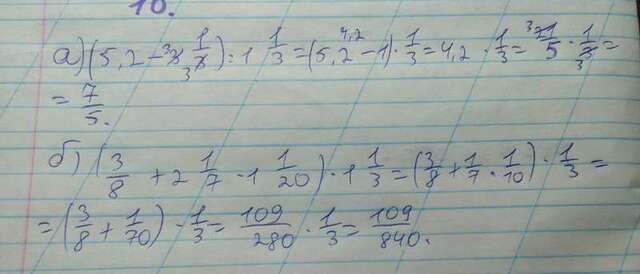 10.
а) (5,2 - 3 1/3) : 1 1/3 = (5,2 - 1) · 1/3 = 4,2 · 1/3 = 21/5 · 1/3 =
= 7/5.
б) (3/8 + 2 1/7 · 1 1/20) · 1 1/3 = (3/8 + 1/7 · 1/10) · 1/3 =
= (3/8 + 1/70) · 1/3 = 109/280 · 1/3 = 109/840.